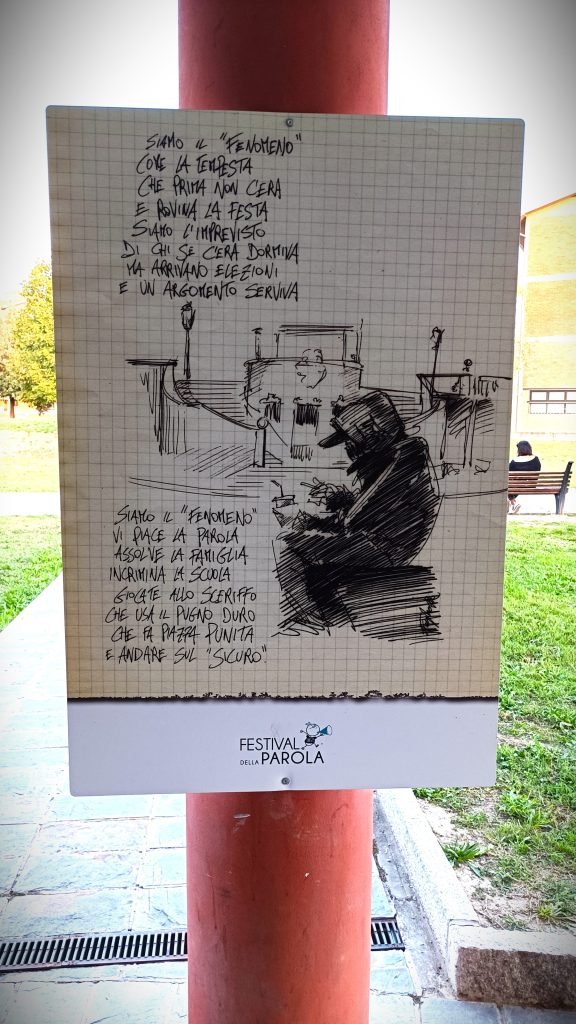 SIAMO IL "FENOMENO"
COME LA TEMPESTA
CHE PRIMA NON C'ERA
E ROVINA LA FESTA
SIAMO L'IMPREVISTO
DI CHI SE C'ERA DORMIVA
MA ARRIVANO ELEZIONI
E UN ARGOMENTO SERVIVA
SIAMO IL "FENOMENO"
VI PIACE LA PAROLA
ASSOLVE LA FAMIGLIA
INCRIMINA LA SCUOLA
GIOCATE ALLO SCERIFFO
CHE USA IL PUGNO DURO
CHE FA PIAZZA PUNITA
E ANDARE SUL "SICURO".
FESTIVAL
DELLA PAROLA